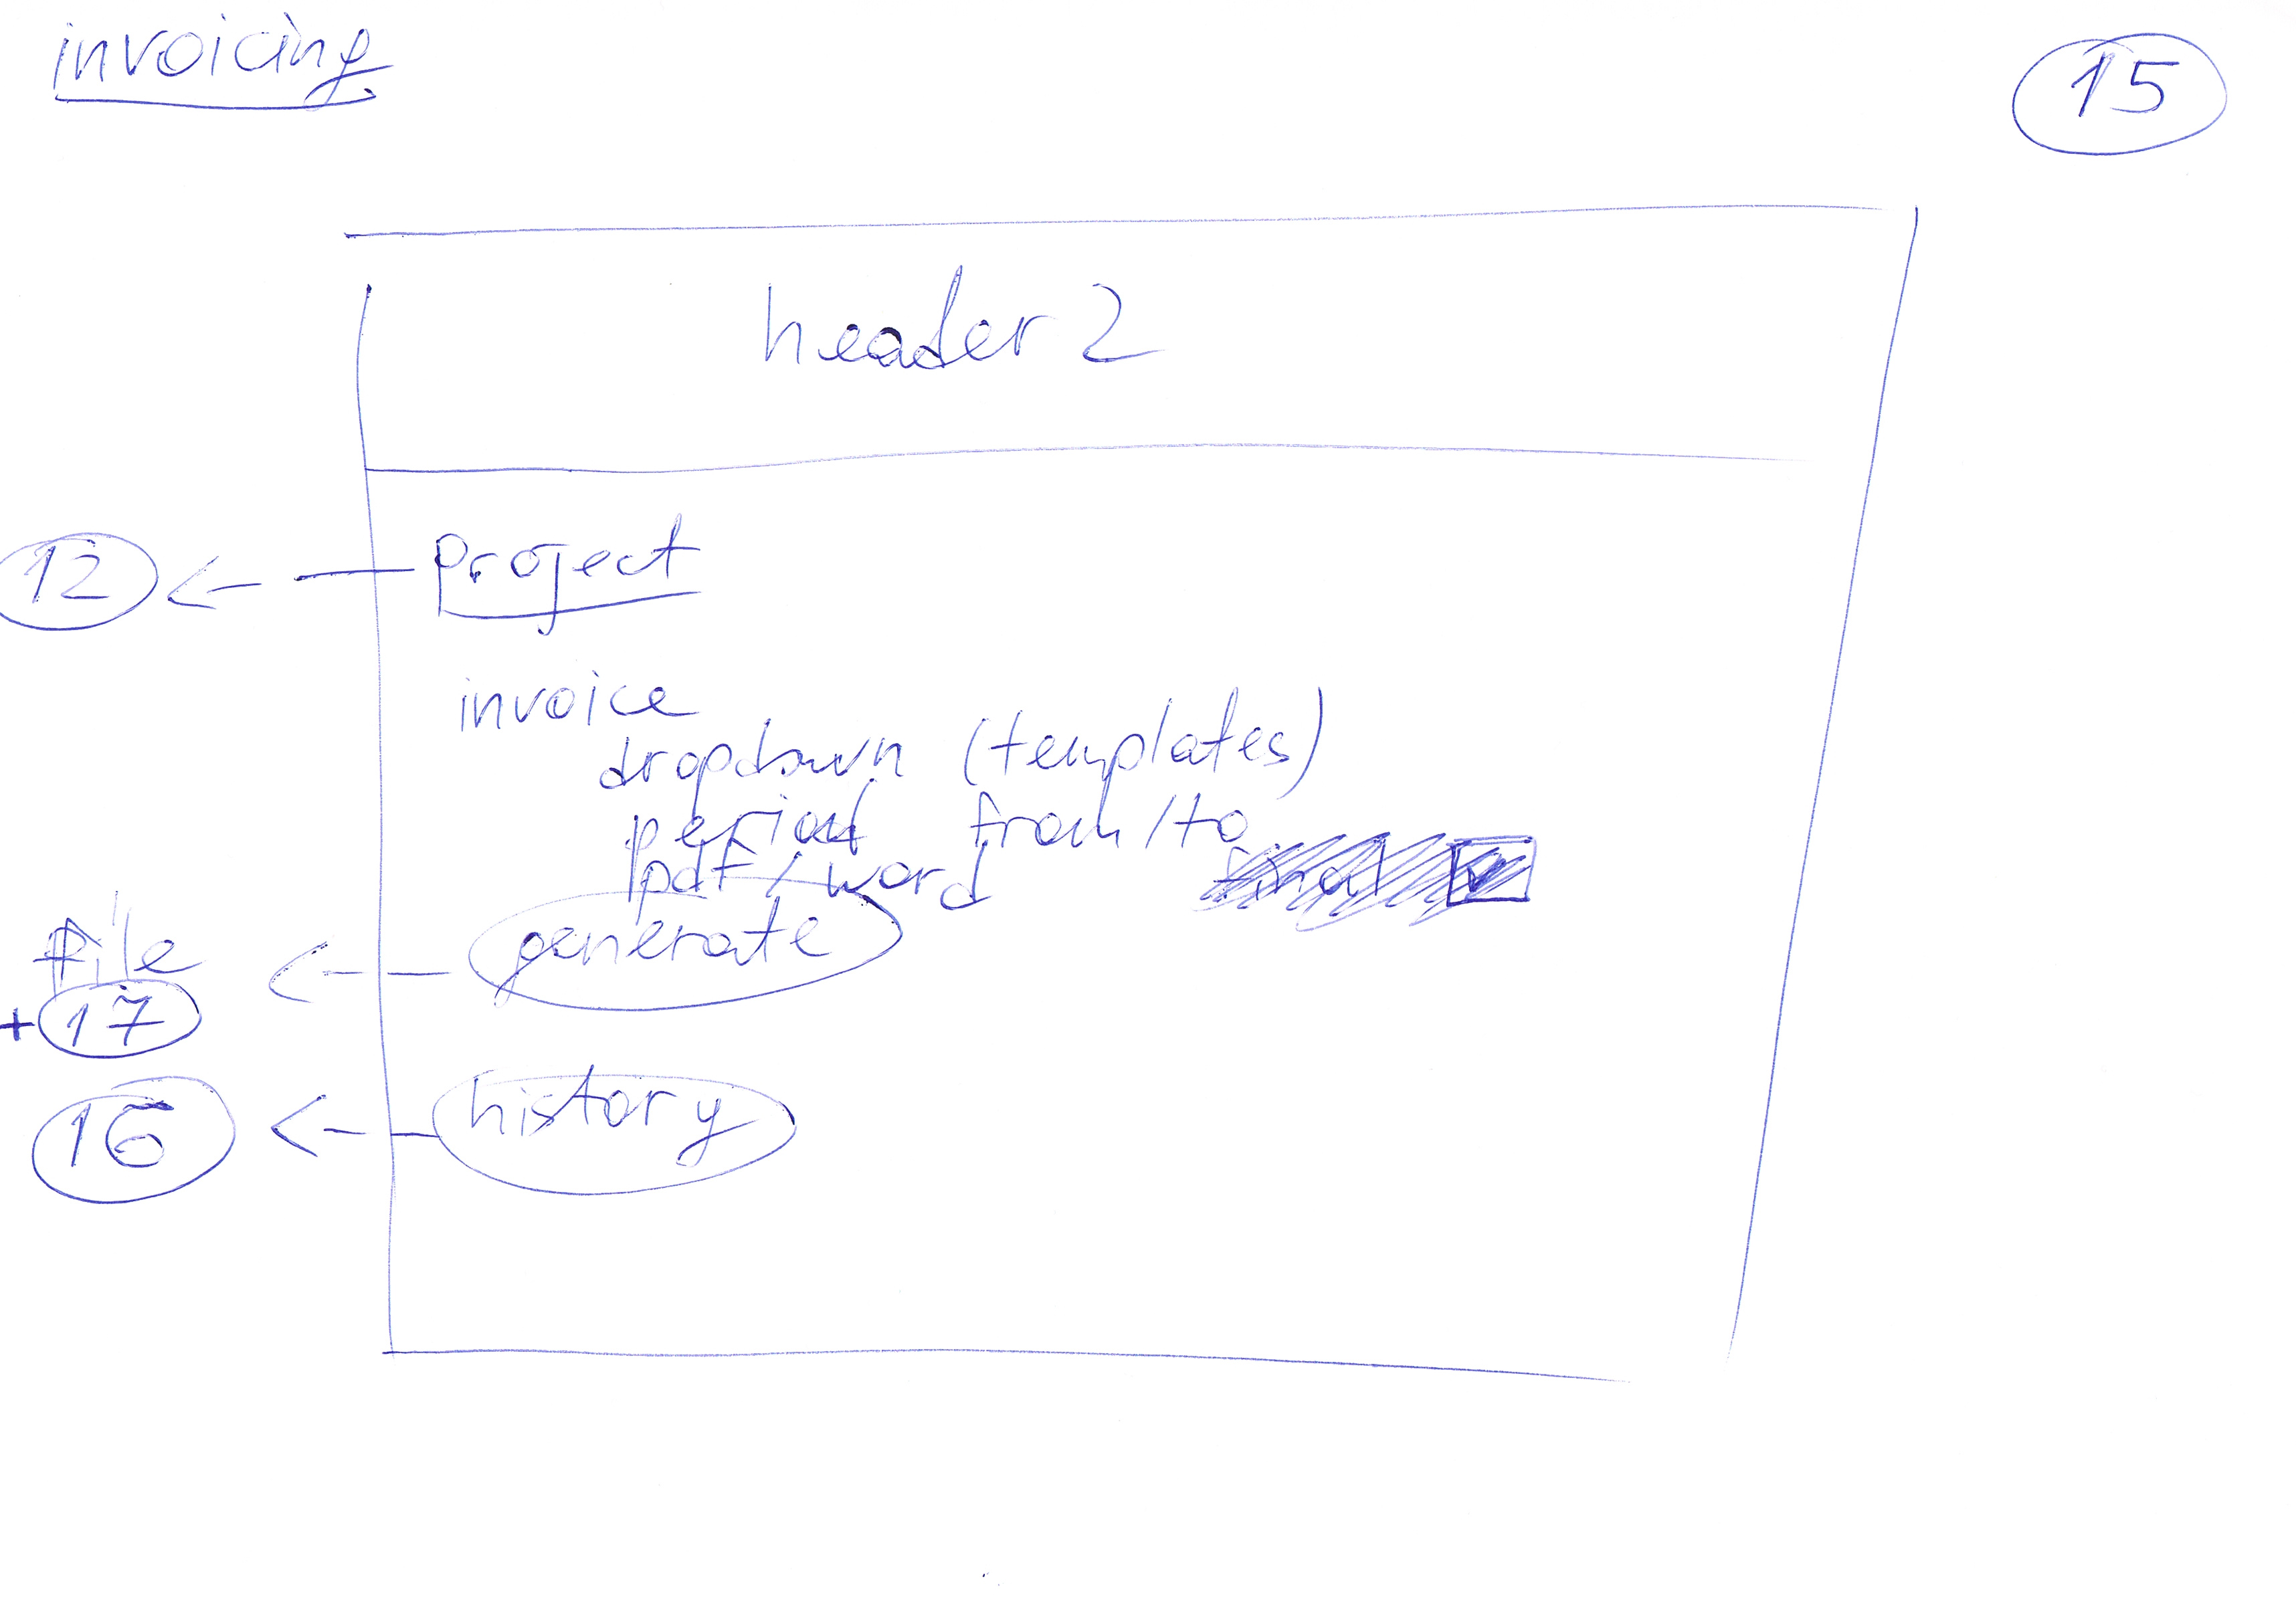 invoicing
15
header 2
12 <- project
invoice
dropdown (templates)
period from/to
pdf / word final
file <- generate
+ 17
16 <- history